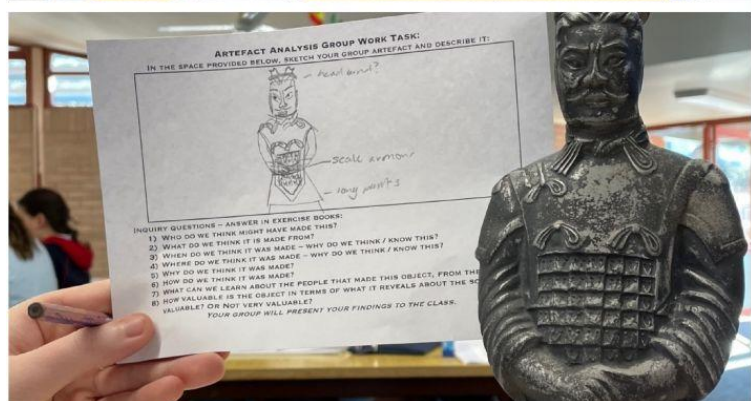 ARTEFACT ANALYSIS GROUP WORK TASK:
IN THE SPACE PROVIDED BELOW, SKETCH YOUR GROUP ARTEFACT AND DESCRIBE IT:
scale armour
INQUIRY QUESTIONS – ANSWER IN EXERCISE BOOKS:
1) WHO DO WE THINK MIGHT HAVE MADE THIS?
2) WHAT DO WE THINK IT IS MADE FROM?
3) WHEN DO WE THINK IT WAS MADE – WHY DO WE THINK / KNOW THIS?
4) WHERE DO WE THINK IT WAS MADE – WHY DO WE THINK / KNOW THIS?
5) WHY DO WE THINK IT WAS MADE?
6) HOW DO WE THINK IT WAS MADE?
7) WHAT CAN WE LEARN ABOUT THE PEOPLE THAT MADE THIS OBJECT, FROM THE
8) HOW VALUABLE IS THE OBJECT IN TERMS OF WHAT IT REVEALS ABOUT THE
VALUABLE? OR NOT VERY VALUABLE?
YOUR GROUP WILL PRESENT YOUR FINDINGS TO THE CLASS.